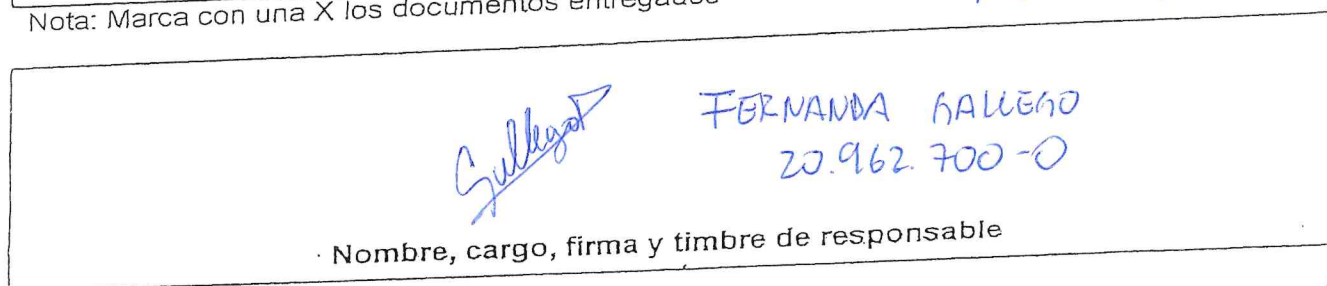 Nota: Marca con una X los documentos entregados
Gallegos
FERNANDA GALLEGO
20.962.700-0
Nombre, cargo, firma y timbre de responsable